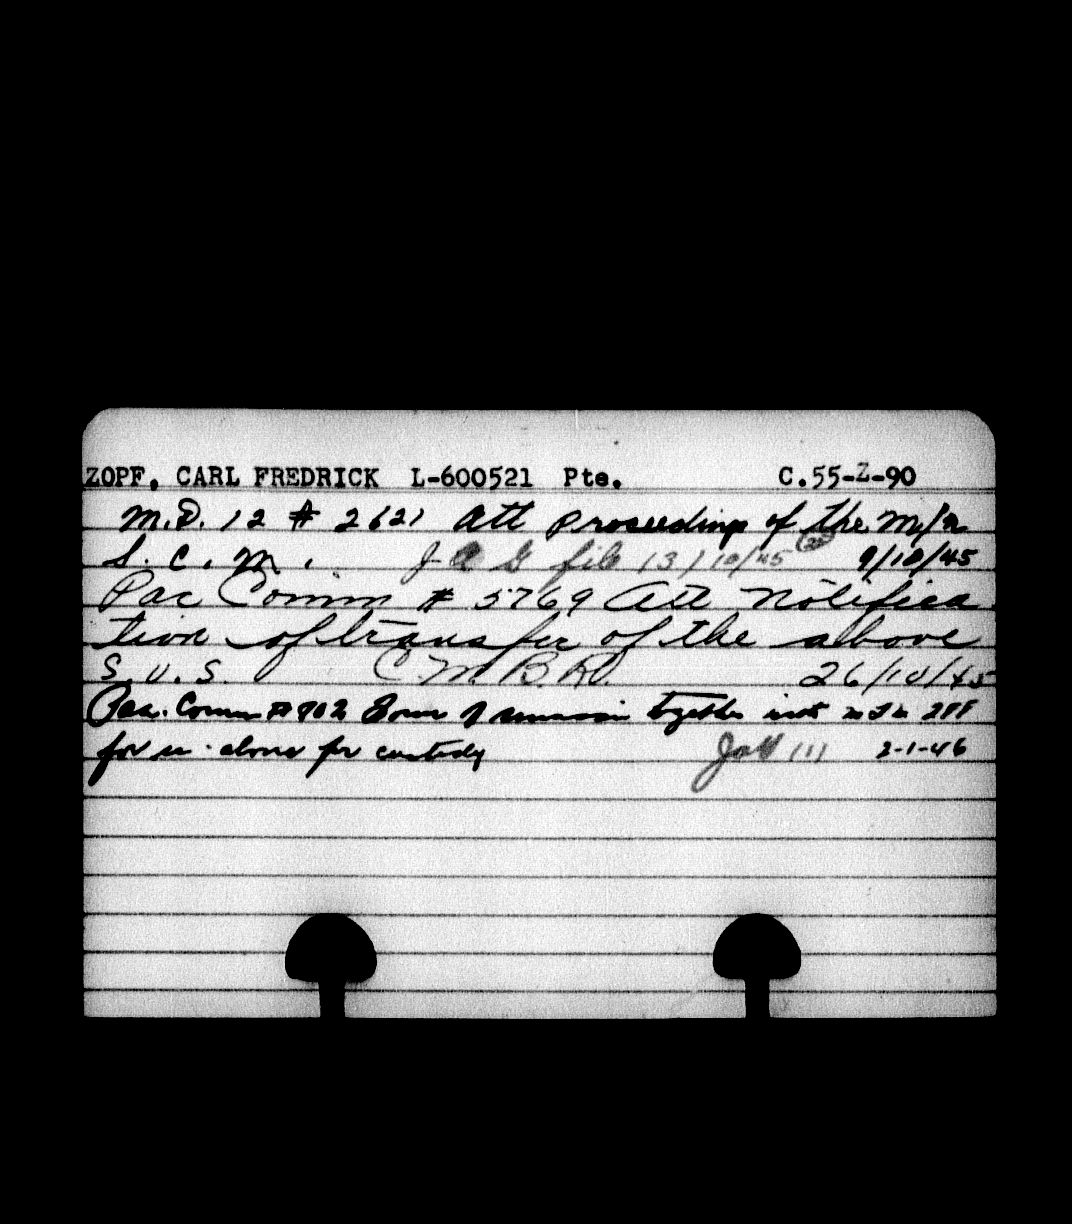 ZOPF, CARL FREDRICK L-600521 Pte. C.55-Z-90
M.D. 12 # 2621 Att Proceedings of the M/n
S.C.M. JAG file 13/10/45 9/10/45
Pac Comm # 5769 Att Notifica
tion of transfer of the above
S.U.S. C.M.B.R. 26/10/45
Pac. Comm # 902 Form of remission together with
for custody 2-1-46